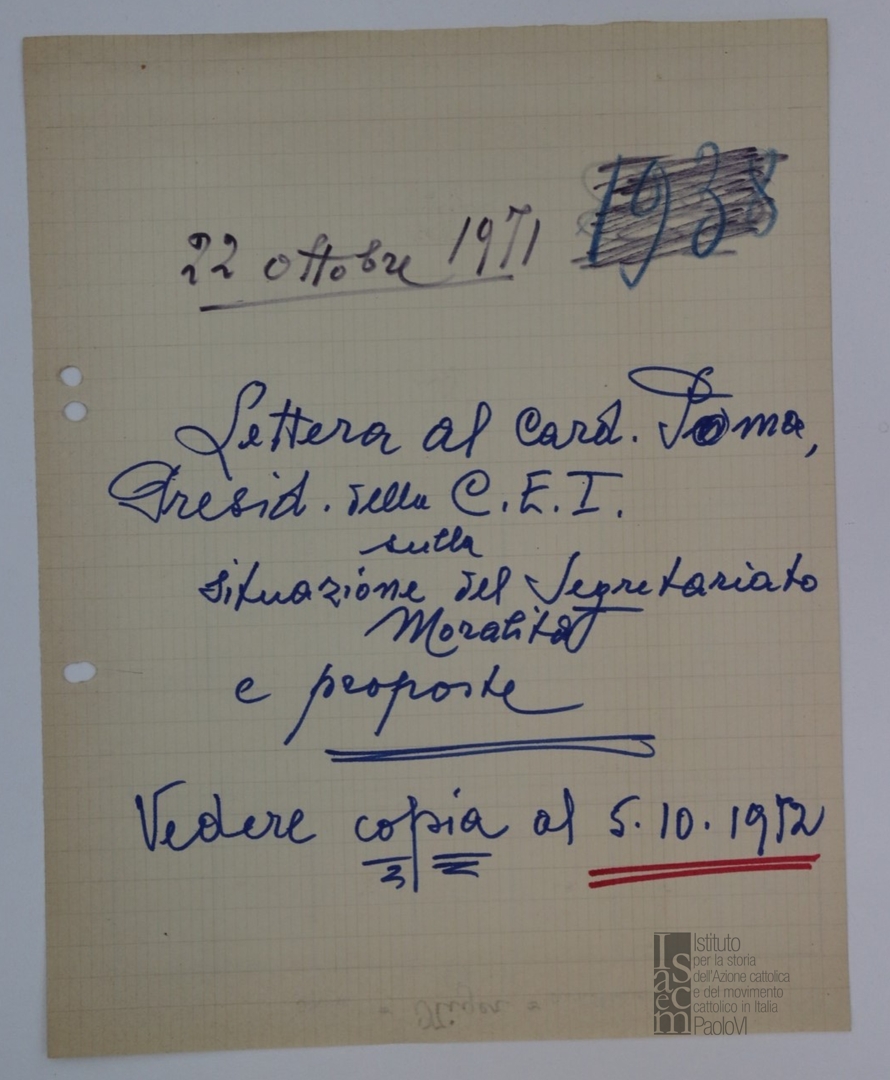 22 ottobre 1971 1938
Lettera al Card. Poma,
Presid. della C.E.I.
sulla
situazione del Segretariato
Moralità
e proposte
Vedere copia al 5.10.1972
Isacem
Istituto
per la storia
dell'Azione cattolica
e del movimento
cattolico in Italia
PaoloVI